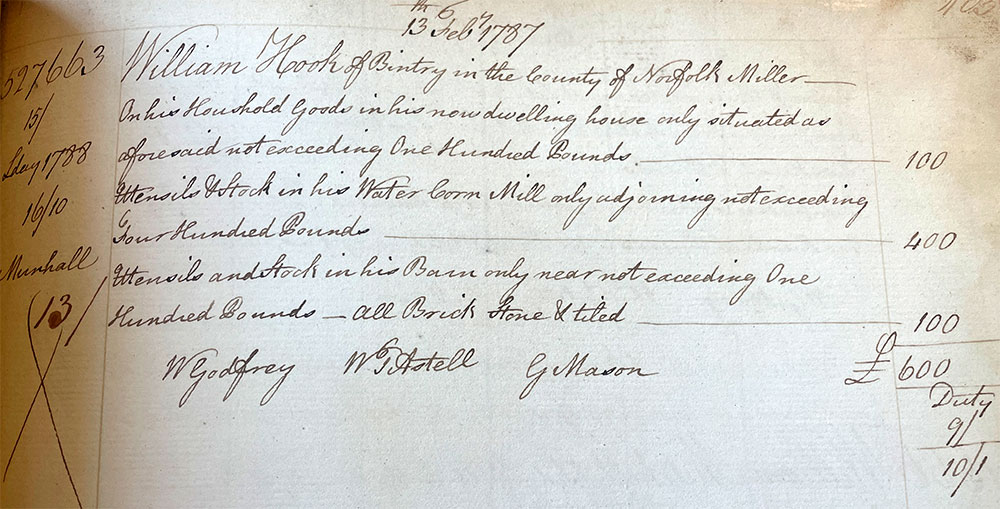 13th Feby 1787
527663
William Hook of Bintry in the County of Norfolk Miller
15/
On his Houshold Goods in his now dwelling house only situated as
Lday 1788
aforesaid not exceeding One Hundred Pounds. 100
16/10
Utensils & Stock in his Water Corn Mill only adjoining not exceeding
Four Hundred Pounds 400
Munhall
Utensils and Stock in his Barn only near not exceeding One
13
Hundred Pounds - All Brick Stone & tiled 100
W Godfrey W T Astell G Mason £ 600
Duty
9/
10/1